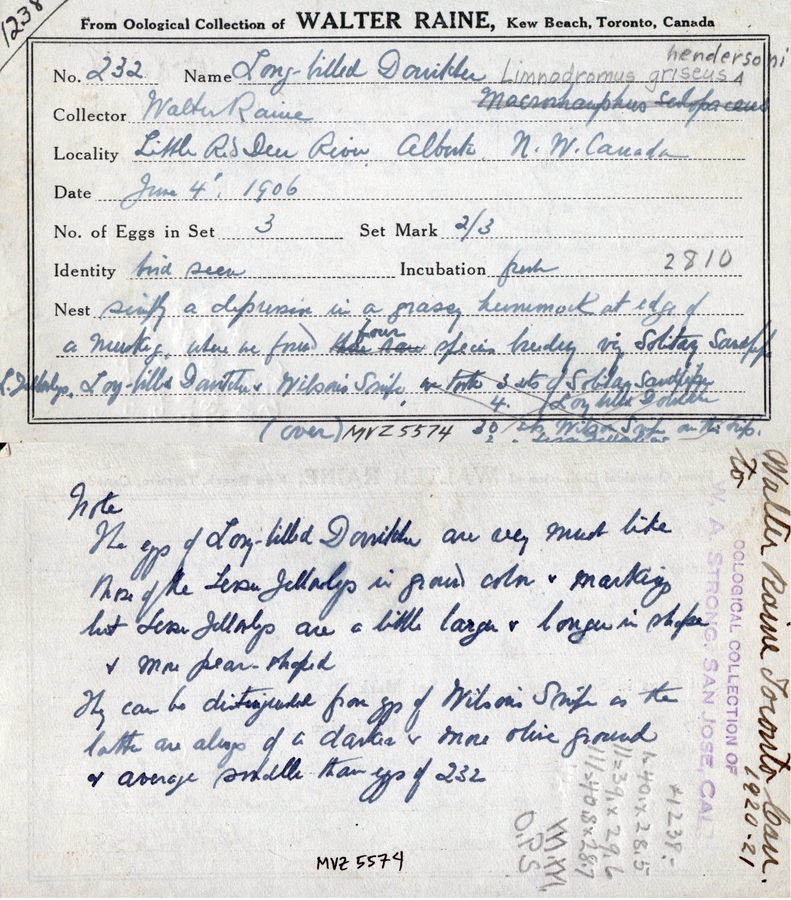 1238
From Oological Collection of WALTER RAINE, Kew Beach, Toronto, Canada
hendersoni
No. 232 Name Long-billed Dowitcher Limnodromus griseus
Macrorhamphus scolopaceus
Collector Walter Raine
Locality Little Red Deer River Alberta, N. W. Canada
Date June 4", 1906
No. of Eggs in Set 3 Set Mark 2/3
Identity bird seen Incubation fresh 2810
Nest simply a depression in a grassy hummock at edge of
four
a muskeg, where we found species breeding viz Solitary Sandpiper
L. Yellowlegs, Long-billed Dowitcher & Wilson's Snipe, we took 3 sets of Solitary Sandpiper
4. Long billed Dowitcher
(over) MVZ 5574 30 sets Wilson Snipe on this trip.
Note
The eggs of Long-billed Dowitcher are very much like
those of the Lesser Yellowlegs in ground color & markings
but Lesser Yellowlegs are a little larger & longer in shape
& more pear-shaped
They can be distinguished from eggs of Wilson's Snipe as the
latter are always of a darker & more olive ground
& average smaller than eggs of 232
MVZ 5574
Walter Raine Toronto Can.
to
1920-21
OOLOGICAL COLLECTION OF
W. A. STRONG, SAN JOSE, CAL.
#1238:-
1=40.1 x 28.5
11=39.1 x 29.6
111=40.8 x 28.7
M.M.
O.P.S.